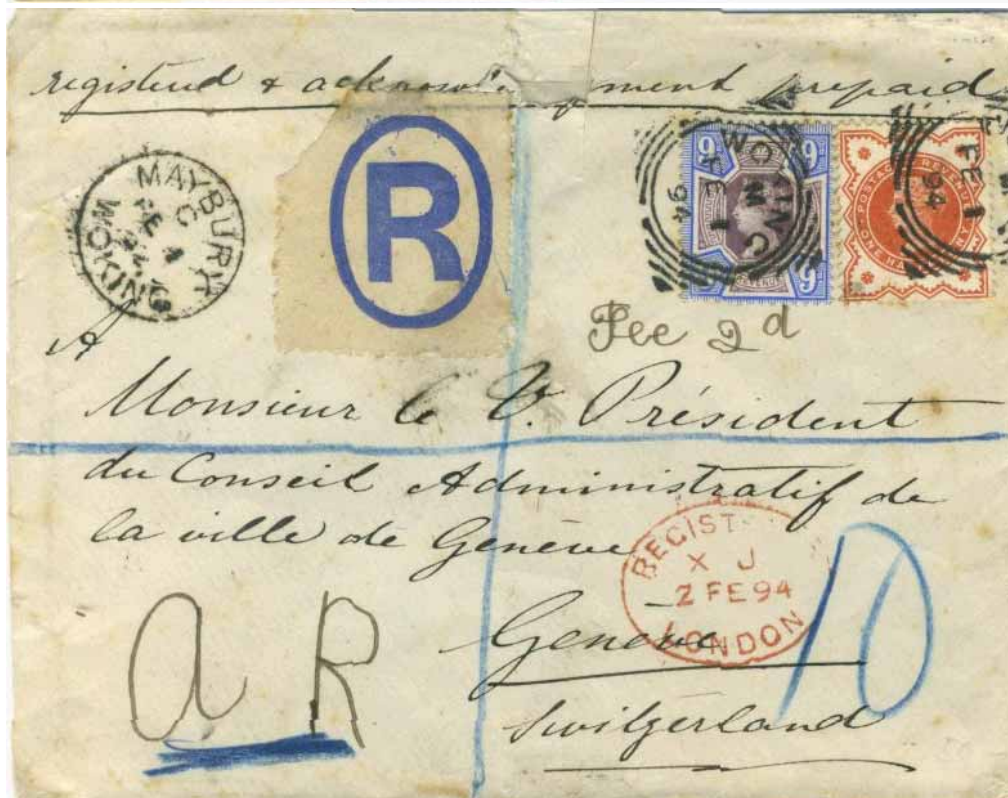 registered & acknowl gment prepaid
MAYBURY
C
FE 1
94
WOKING
R
9d 9d
REVENUE
9d 9d
WOKING
M
FE 1
94
POSTAGE & REVENUE
ONE HALFPENNY
FE 1
94
Fee 2d
A
Monsieur le V. Président
du Conseil Administratif de
la ville de Genève
REGIST
X J
2 FE 94
LONDON
10
a R
Genève
Switzerland